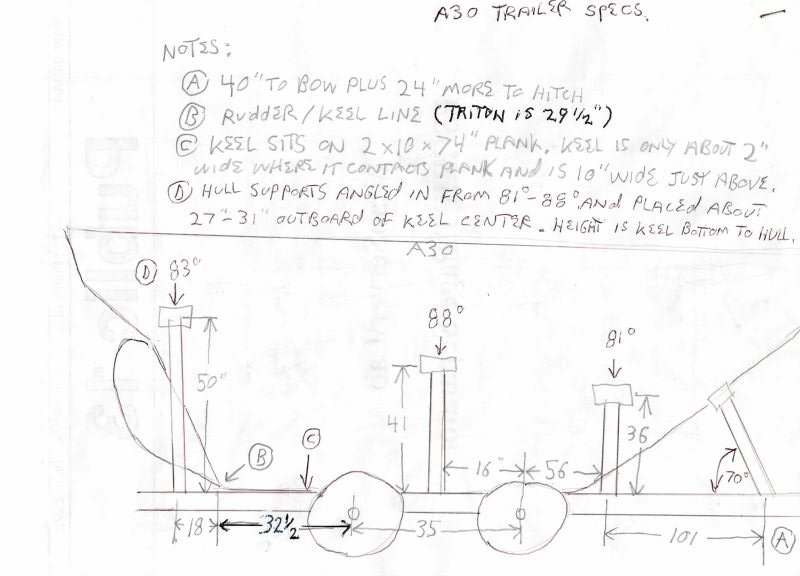 A30 TRAILER SPECS.
NOTES:
Ⓐ 40" TO BOW PLUS 24" MORE TO HITCH
Ⓑ RUDDER/KEEL LINE (TRITON IS 29 1/2")
Ⓒ KEEL SITS ON 2x10x74" PLANK. KEEL IS ONLY ABOUT 2"
WIDE WHERE IT CONTACTS PLANK AND IS 10" WIDE JUST ABOVE.
Ⓓ HULL SUPPORTS ANGLED IN FROM 81°-88° AND PLACED ABOUT
27"-31" OUTBOARD OF KEEL CENTER. HEIGHT IS KEEL BOTTOM TO HULL.
A30
Ⓓ 83°
88°
81°
50"
41
36
Ⓑ
Ⓒ
16"
56
70°
18
32 1/2
35
101
Ⓐ